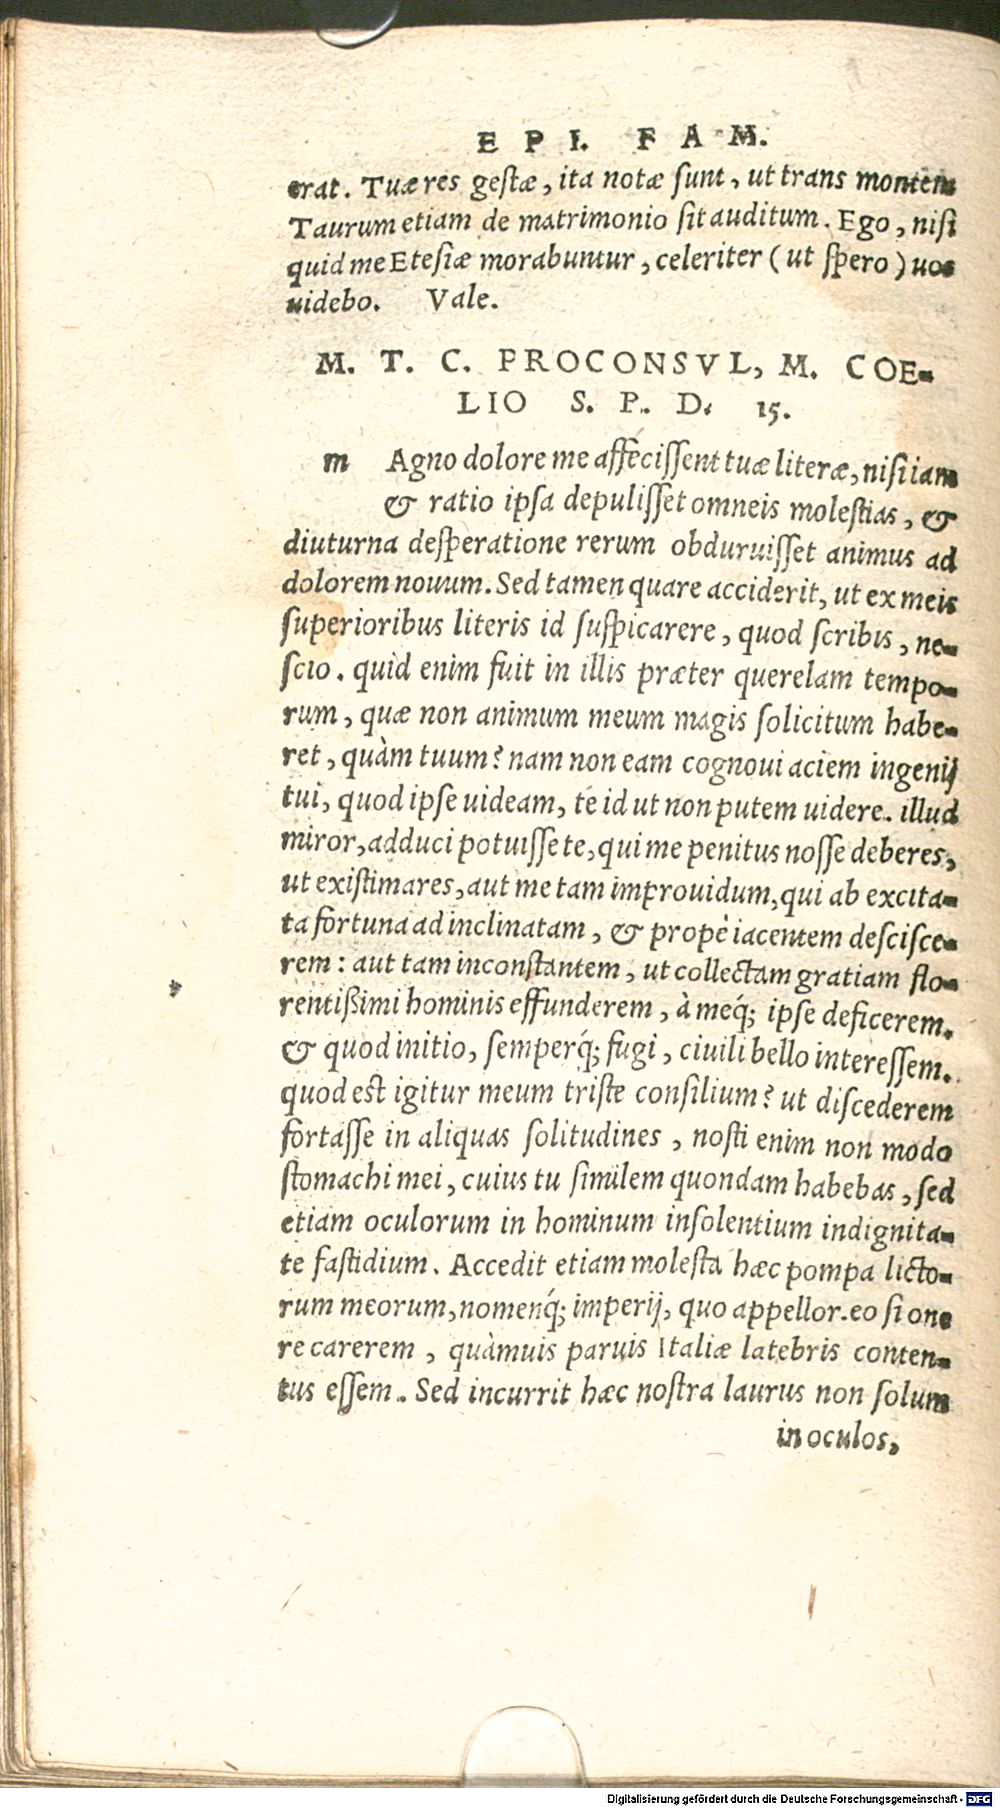 EPI. FAM.
erat. Tuæ res gestæ, ita notæ sunt, ut trans montem
Taurum etiam de matrimonio sit auditum. Ego, nisi
quid me Etesiæ morabuntur, celeriter (ut spero) uos
uidebo. Vale.
M. T. C. PROCONSVL, M. COE-
LIO S. P. D. 15.
m Agno dolore me affecissent tuæ literæ, nisi iam
& ratio ipsa depulisset omneis molestias, &
diuturna desperatione rerum obduruisset animus ad
dolorem nouum. Sed tamen quare acciderit, ut ex meis
superioribus literis id suspicarere, quod scribis, ne-
scio. quid enim fuit in illis præter querelam tempo-
rum, quæ non animum meum magis solicitum habe-
ret, quàm tuum? nam non eam cognoui aciem ingenij
tui, quod ipse uideam, te id ut non putem uidere. illud
miror, adduci potuisse te, qui me penitus nosse deberes,
ut existimares, aut me tam improuidum, qui ab excita-
ta fortuna ad inclinatam, & propè iacentem descisce-
rem: aut tam inconstantem, ut collectam gratiam flo-
rentißimi hominis effunderem, à meq́; ipse deficerem.
& quod initio, semperq́; fugi, ciuili bello interessem.
quod est igitur meum triste consilium? ut discederem
fortasse in aliquas solitudines, nosti enim non modo
stomachi mei, cuius tu similem quondam habebas, sed
etiam oculorum in hominum insolentium indignita-
te fastidium. Accedit etiam molesta hæc pompa licto-
rum meorum, nomenq́; imperij, quo appellor. eo si one
re carerem, quàmuis paruis Italiæ latebris conten-
tus essem. Sed incurrit hæc nostra laurus non solum
in oculos,
Digitalisierung gefördert durch die Deutsche Forschungsgemeinschaft - DFG